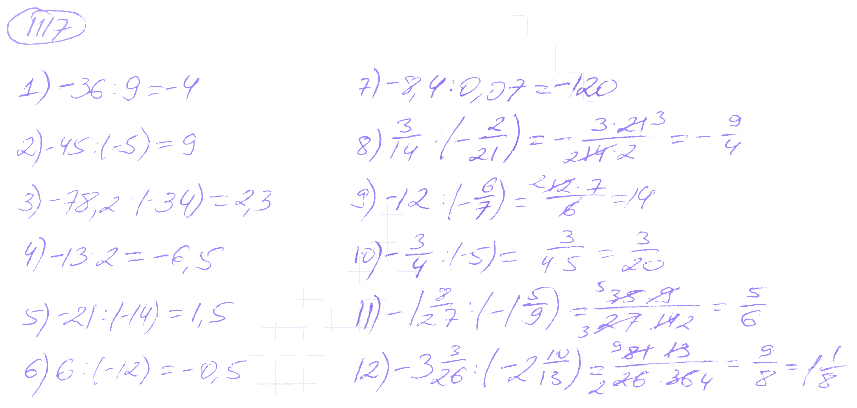 1117
1) -36 : 9 = -4
2) -45 : (-5) = 9
3) -78,2 : (-34) = 2,3
4) -13 : 2 = -6,5
5) -21 : (-14) = 1,5
6) 6 : (-12) = -0,5
7) -8,4 : 0,07 = -120
8) 3/14 : (-2/21) = - 3·21 3/2 14·2 = -9/4
9) -12 : (-6/7) = 2 12·7/6 = 14
10) -3/4 : (-5) = 3/4·5 = 3/20
11) -1 8/27 : (-1 5/9) = 5 35·9/3 27·14 2 = 5/6
12) -3 3/26 : (-2 10/13) = 9 81·13/2 26·36 4 = 9/8 = 1 1/8